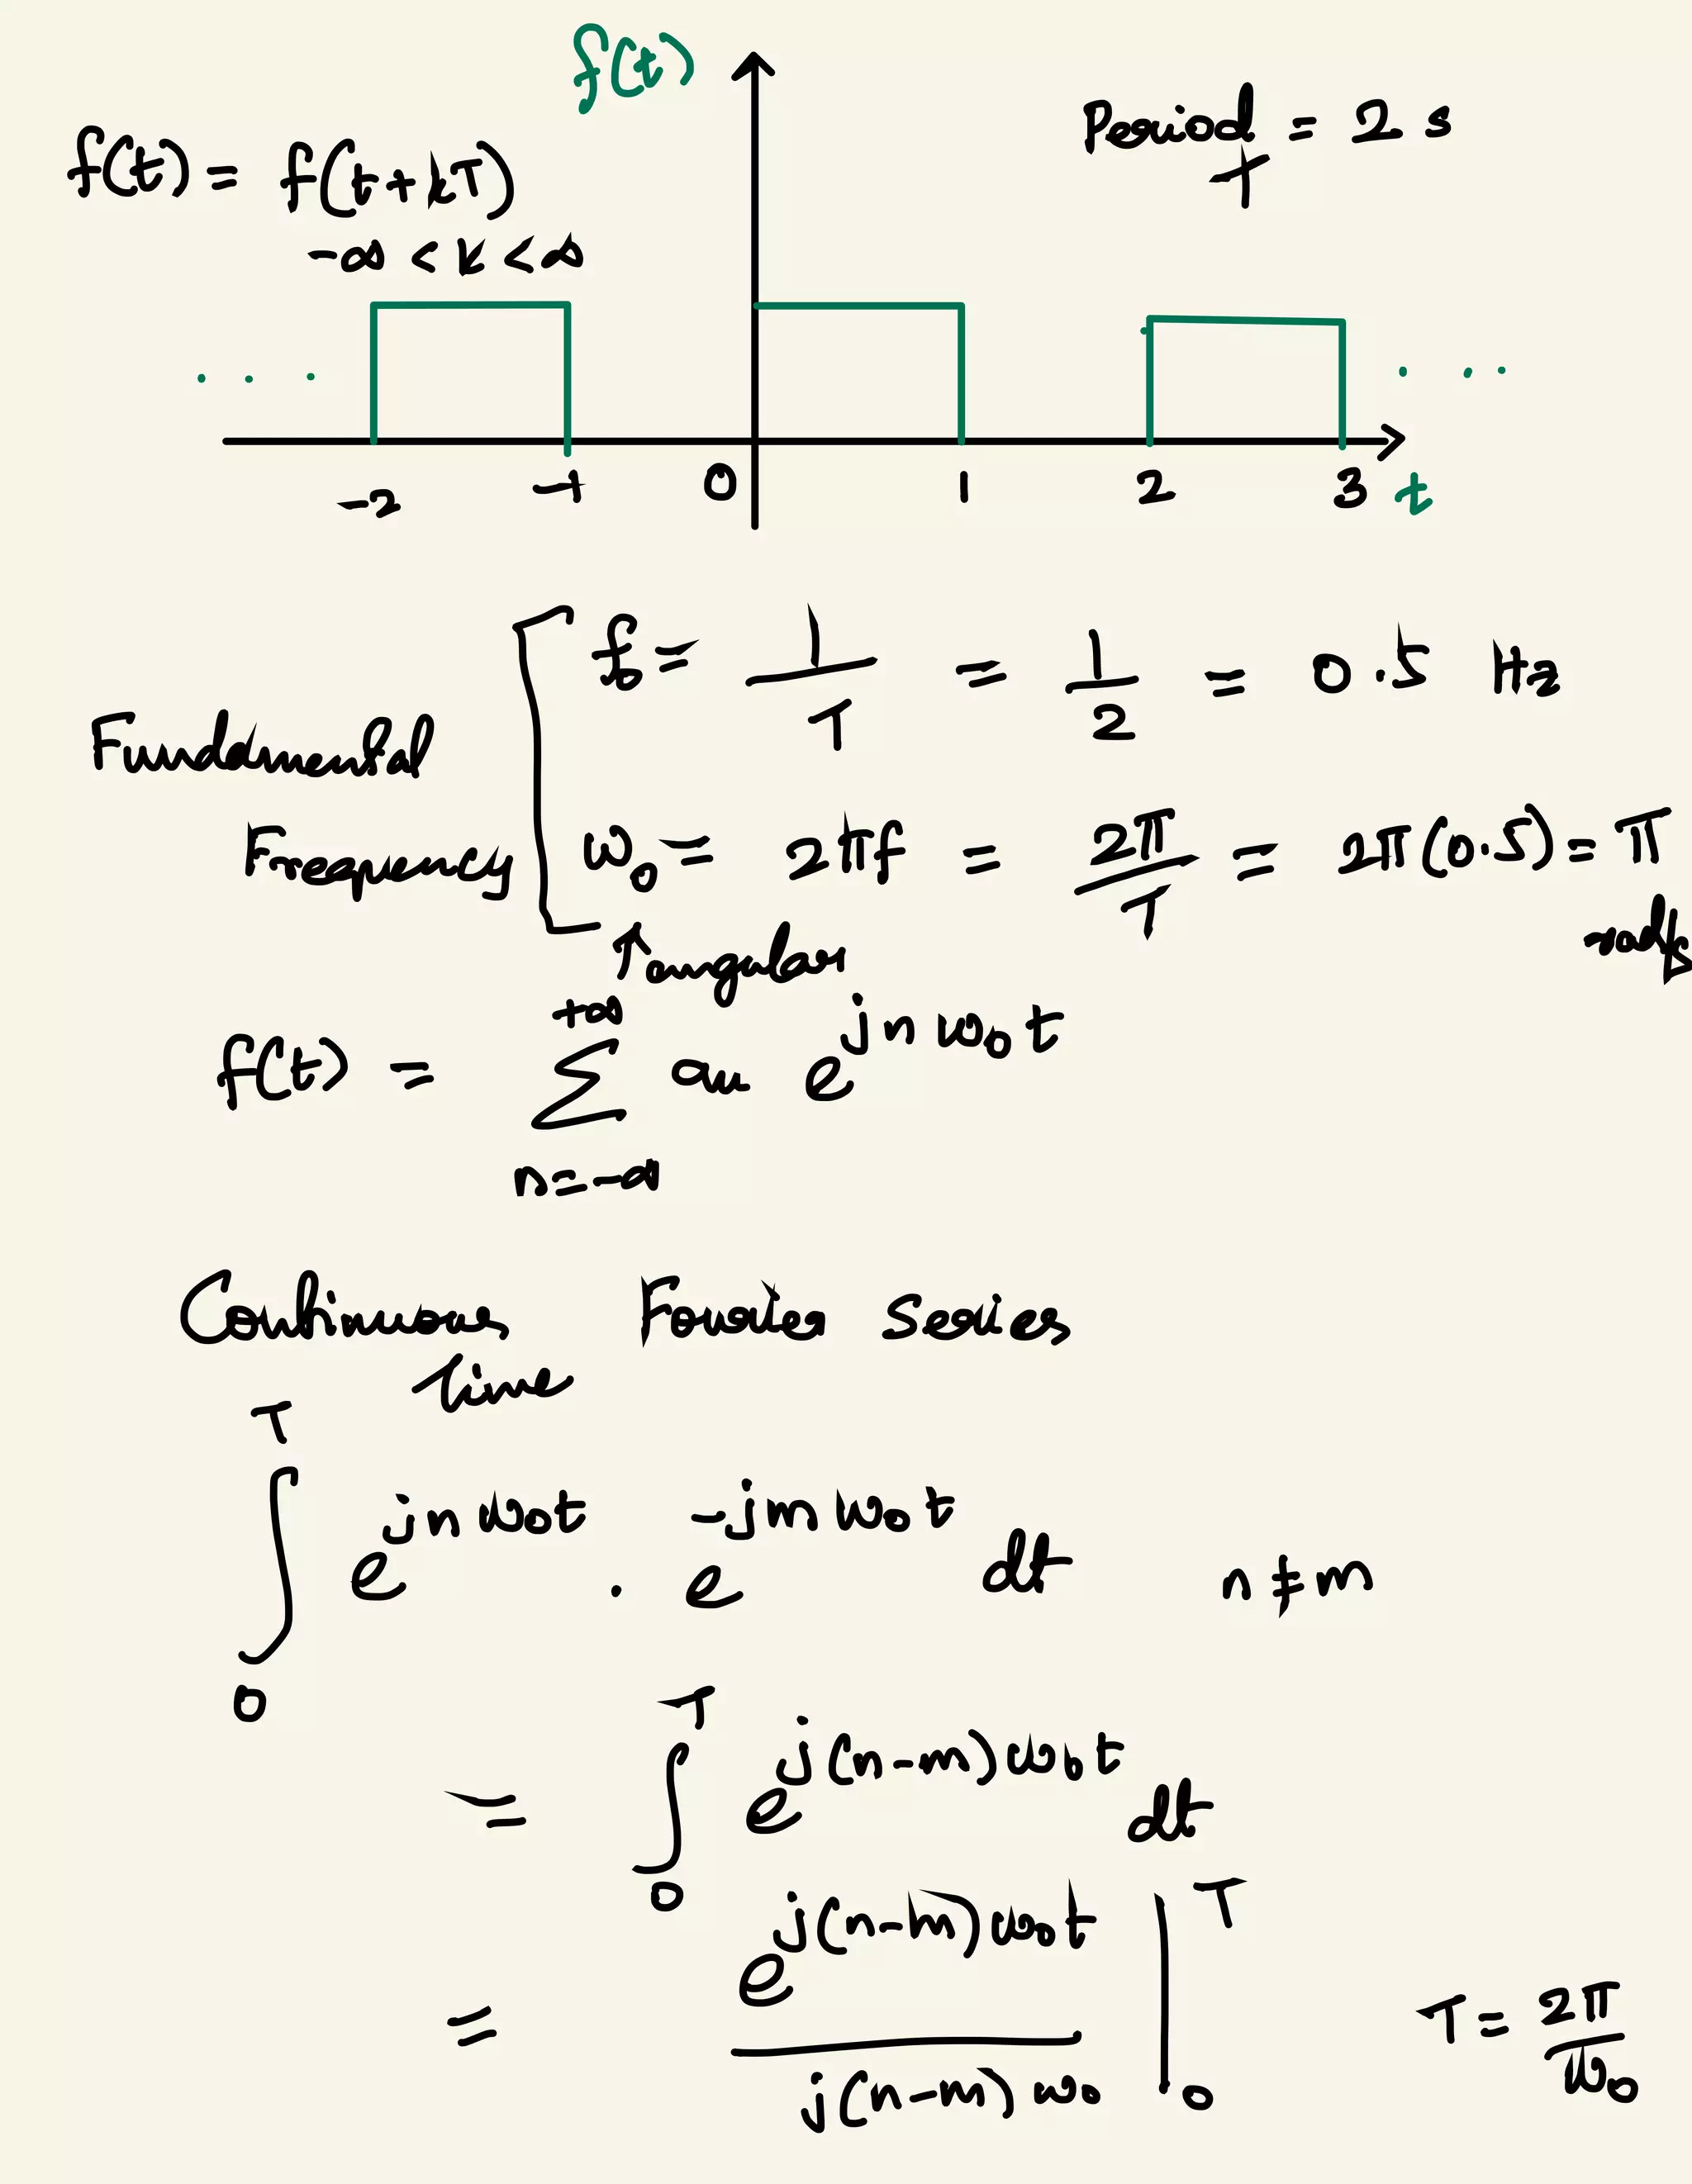 f(t)
Period = 2 s
T
f(t) = f(t+kT)
-∞ < k < ∞
. . .
. . .
-2 -1 0 1 2 3 t
f₀ = 1/T = 1/2 = 0.5 Hz
Fundamental
Frequency
ω₀ = 2πf = 2π/T = 2π(0.5) = π
rad/s
↑angular
f(t) = ∑_{n=-∞}^{+∞} aₙ e^{jnω₀t}
Continuous Fourier Series
time
∫₀ᵀ e^{jnω₀t} . e^{-jmω₀t} dt n ≠ m
= ∫₀ᵀ e^{j(n-m)ω₀t} dt
= e^{j(n-m)ω₀t} / j(n-m)ω₀ |₀ᵀ T = 2π/ω₀